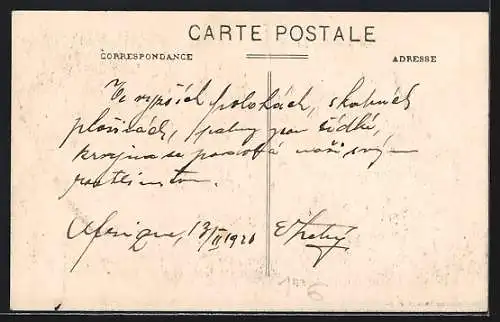 CARTE POSTALE
CORRESPONDANCE
ADRESSE
Ve vyšších polohách, skalnách
plošinách, palmy jsou řídké,
krajina se podobá naší svým
rostlinstvem.
Afrique, 13/II 1921